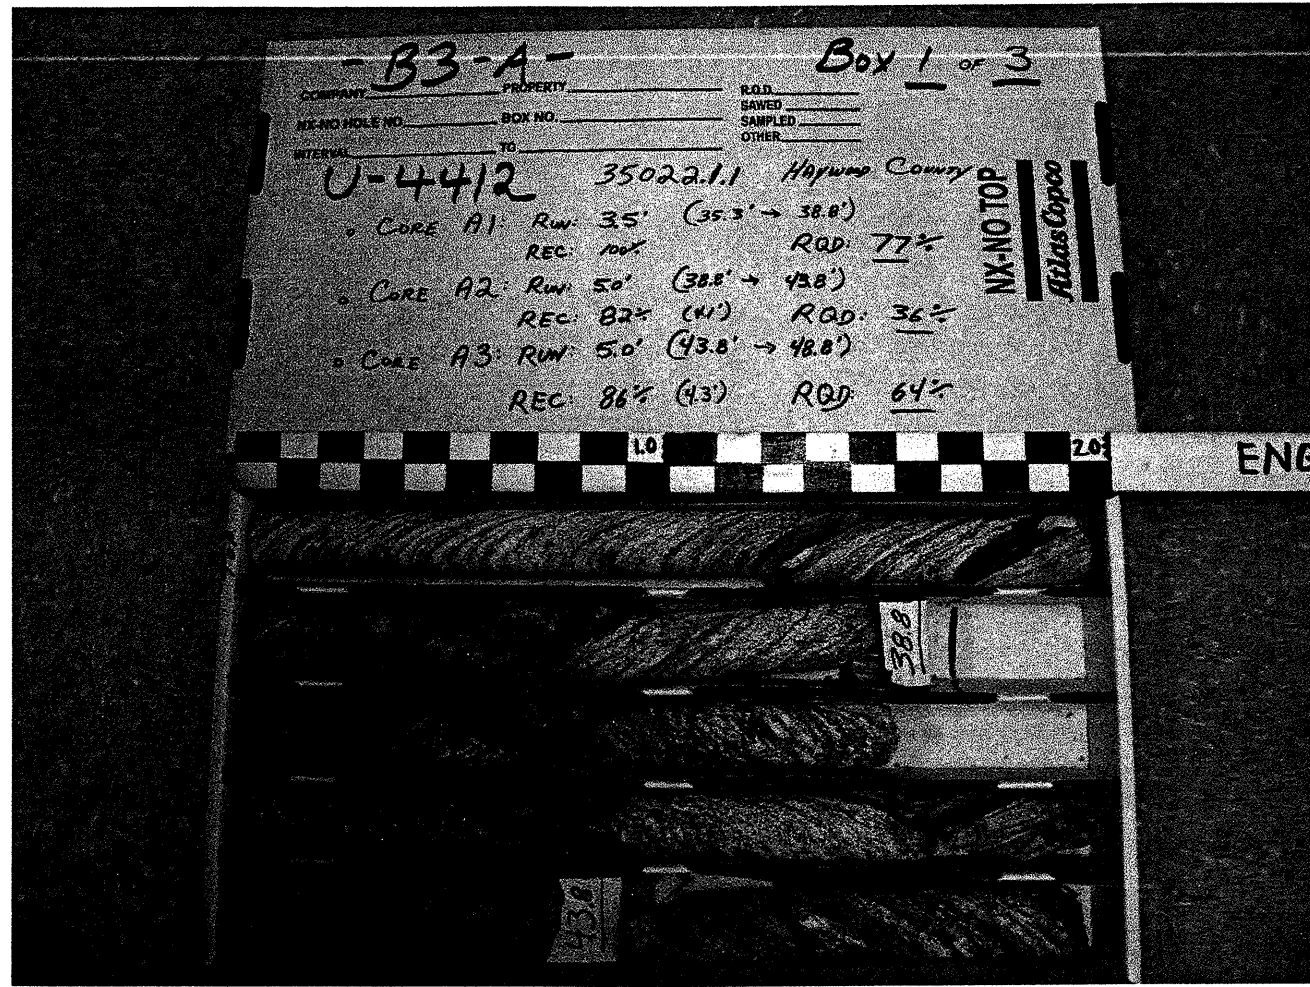 -B3-A- Box 1 OF 3
COMPANY PROPERTY R.Q.D.
SAWED
NX-NO HOLE NO. BOX NO. SAMPLED
OTHER
INTERVAL TO
U-4412 35022.1.1 HAYWOOD COUNTY
NX-NO TOP
Atlas Copco
CORE A1: RUN: 3.5' (35.3' → 38.8')
REC: 100% RQD: 77%
CORE A2: RUN: 5.0' (38.8' → 43.8')
REC: 82% (4.1') RQD: 36%
CORE A3: RUN: 5.0' (43.8' → 48.8')
REC: 86% (4.3') RQD: 64%
1.0 2.0
ENG
38.8
43.8